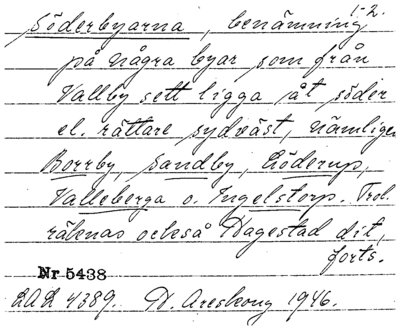 1-2.
Söderbyarna, benämning
på några byar som från
Vallby sett ligga åt söder
el. rättare sydväst, nämligen
Borrby, Sandby, Löderup,
Valleberga o. Ingelstorp. Trol.
räknas också Hagestad dit,
forts.
Nr 5438
LAL 4389. D. Areskoug 1946.